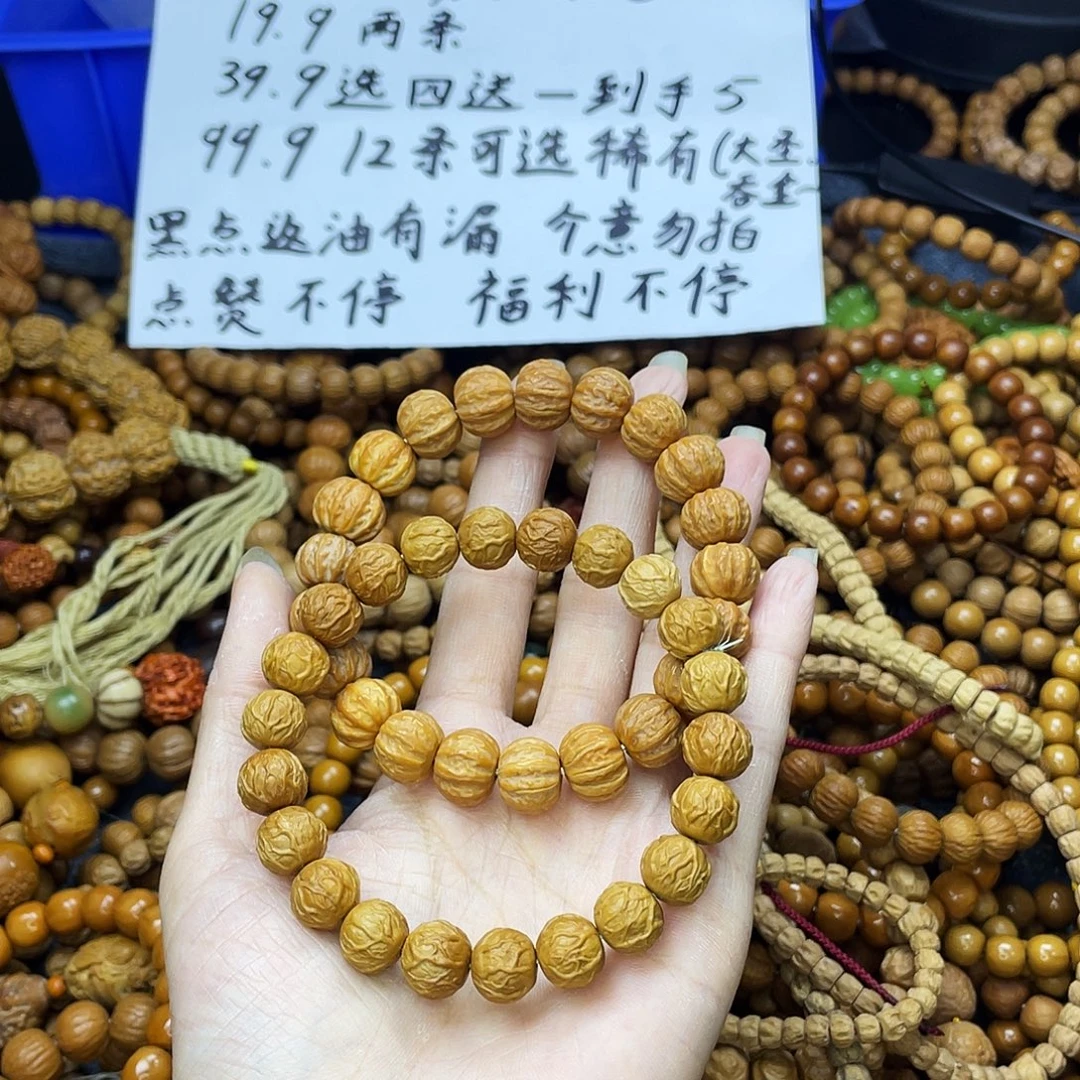 19.9 两条
39.9选四送一到手5
99.9 12条可选稀有(大圣
吞金
黑点返油有漏 介意勿拍
点赞不停 福利不停